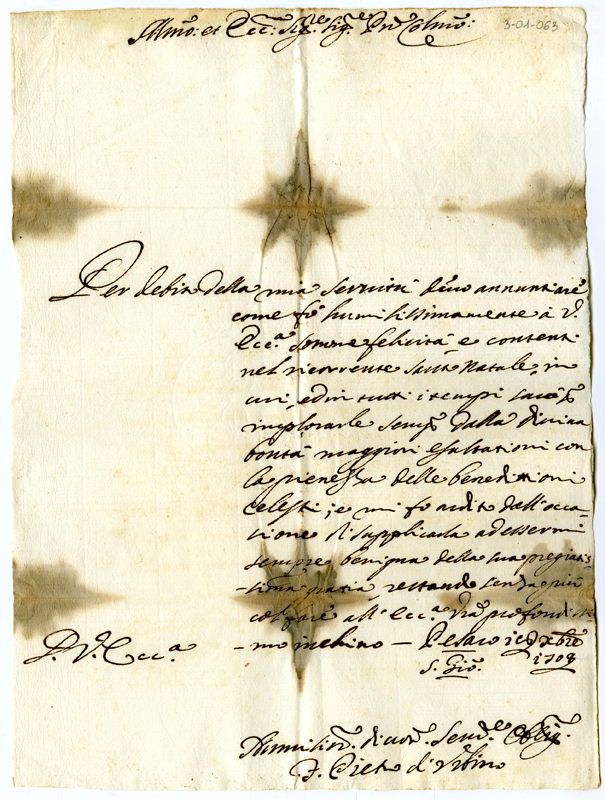 Ill.mo et Ecc. Sig.re Sig.re Pn Colmo:
3-01-063
Per debito della mia servitù devo annuntiare
come fò humilissimamente à V.
Ecc.a somme felicità, e contenti
nel ricorrente Santo Natale, in
cui, ed in tutti i tempi
implorarle semp. dalla divina
bontà maggiori esaltationi con
la pienezza delle benedittioni
celesti; e mi fo ardito dall'occa-
sione di supplicarla ad essermi
sempre benigna della sua pregiatis-
sima gratia restando senza più
all'Ecc.a Vra profondissi-
-mo inchino - Pesaro xbre
1708
S. Gio.
D. V. Ecc.a
Humiliss. divot. Serv.e Oblig.
F. d'Urbino